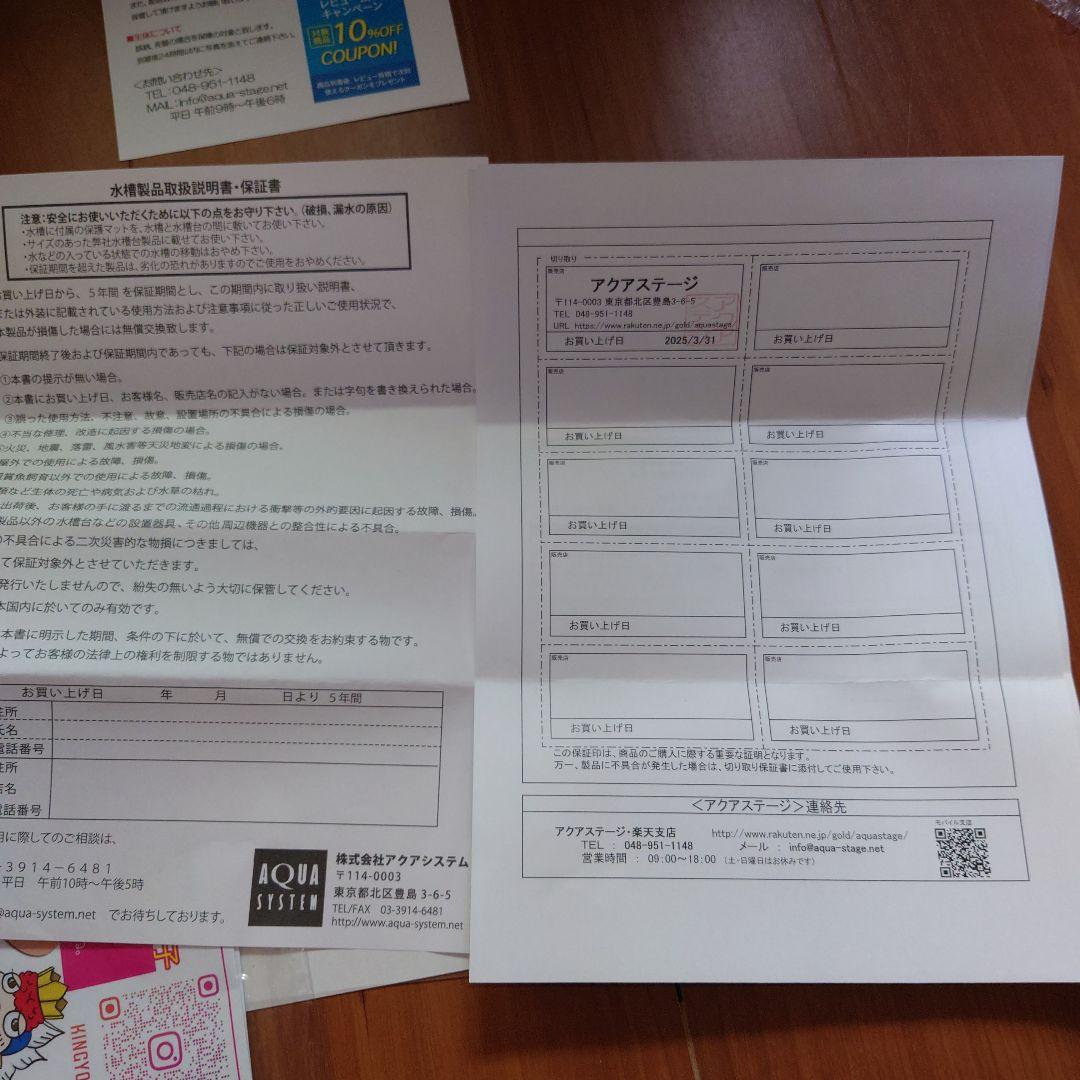 保管して頂けますようお願い
■生体について
<お問い合わせ先>
TEL:048-951-1148
MAIL:info@aqua-stage.net
平日 午前9時~午後6時
レビュー
キャンペーン
対象商品
10%OFF
COUPON!
水槽製品取扱説明書・保証書
注意:安全にお使いいただくために以下の点をお守り下さい。(破損、漏水の原因)
・水槽に付属の保護マットを、水槽と水槽台の間に敷いてお使い下さい。
・サイズのあった弊社水槽台製品に載せてお使い下さい。
・水などの入っている状態での水槽の移動はおやめ下さい。
・保証期間を超えた製品は、劣化の恐れがありますのでご使用をおやめください。
買い上げ日から、5年間 を保証期間とし、この期間内に取り扱い説明書、
または外装に記載されている使用方法および注意事項に従った正しいご使用状況で、
本製品が損傷した場合には無償交換致します。
保証期間終了後および保証期間内であっても、下記の場合は保証対象外とさせて頂きます。
①本書の提示が無い場合。
②本書にお買い上げ日、お客様名、販売店名の記入がない場合。または字句を書き換えられた場合。
③誤った使用方法、不注意、故意、設置場所の不具合による損傷の場合。
④不当な修理、改造に起因する損傷の場合。
火災、地震、落雷、風水害等天災地変による損傷の場合。
屋外での使用による故障、損傷。
観賞魚飼育以外での使用による故障、損傷。
など生体の死亡や病気および水草の枯れ。
出荷後、お客様の手に渡るまでの流通過程における衝撃等の外的要因に起因する故障、損傷。
製品以外の水槽台などの設置器具、その他周辺機器との整合性による不具合。
の不具合による二次災害的な物損につきましては、
て保証対象外とさせていただきます。
発行いたしませんので、紛失の無いよう大切に保管してください。
本国内に於いてのみ有効です。
本書に明示した期間、条件の下に於いて、無償での交換をお約束する物です。
よってお客様の法律上の権利を制限する物ではありません。
お買い上げ日 年 月 日より 5年間
住所
氏名
電話番号
住所
店名
電話番号
用に際してのご相談は、
-3914-6481
平日 午前10時~午後5時
@aqua-system.net でお待ちしております。
AQUA
SYSTEM
株式会社アクアシステム
〒114-0003
東京都北区豊島 3-6-5
TEL/FAX 03-3914-6481
http://www.aqua-system.net
切り取り
販売店
アクアステージ
〒114-0003 東京都北区豊島3-6-5
TEL 048-951-1148
URL https://www.rakuten.ne.jp/gold/aquastage/
お買い上げ日 2025/3/31
販売店
お買い上げ日
販売店
お買い上げ日
販売店
お買い上げ日
販売店
お買い上げ日
販売店
お買い上げ日
販売店
お買い上げ日
販売店
お買い上げ日
販売店
お買い上げ日
販売店
お買い上げ日
この保証印は、商品のご購入に際する重要な証明となります。
万一、製品に不具合が発生した場合は、切り取り保証書に添付してご使用下さい。
<アクアステージ>連絡先
アクアステージ・楽天支店 http://www.rakuten.ne.jp/gold/aquastage/
TEL : 048-951-1148 メール : info@aqua-stage.net
営業時間 : 09:00~18:00 (土・日曜日はお休みです)
モバイル支店
KINGYO